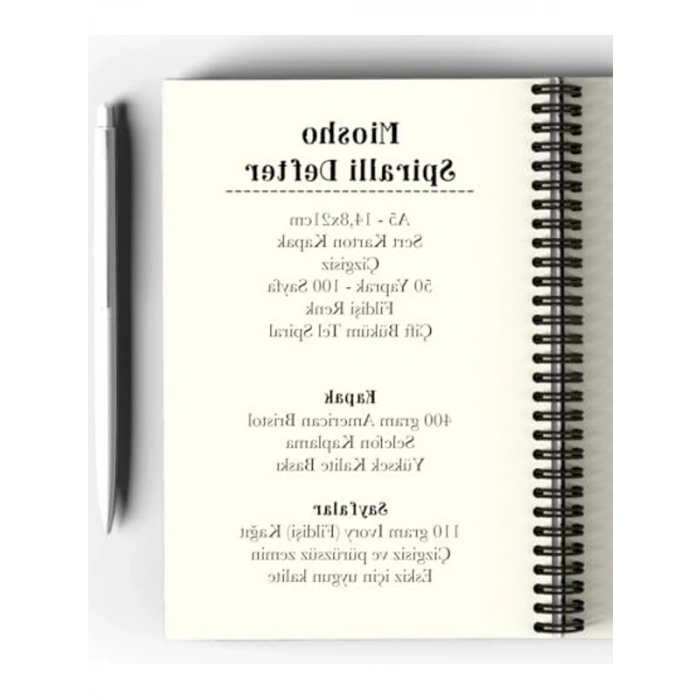 Miosho
Spiralli Defter
A5 - 14,8x21cm
Sert Karton Kapak
Çizgisiz
50 Yaprak - 100 Sayfa
Fildişi Renk
Çift Büküm Tel Spiral
Kapak
400 gram American Bristol
Selefon Kaplama
Yüksek Kalite Baskı
Sayfalar
110 gram Ivory (Fildişi) Kağıt
Çizgisiz ve pürüzsüz zemin
Eskiz için uygun kalite